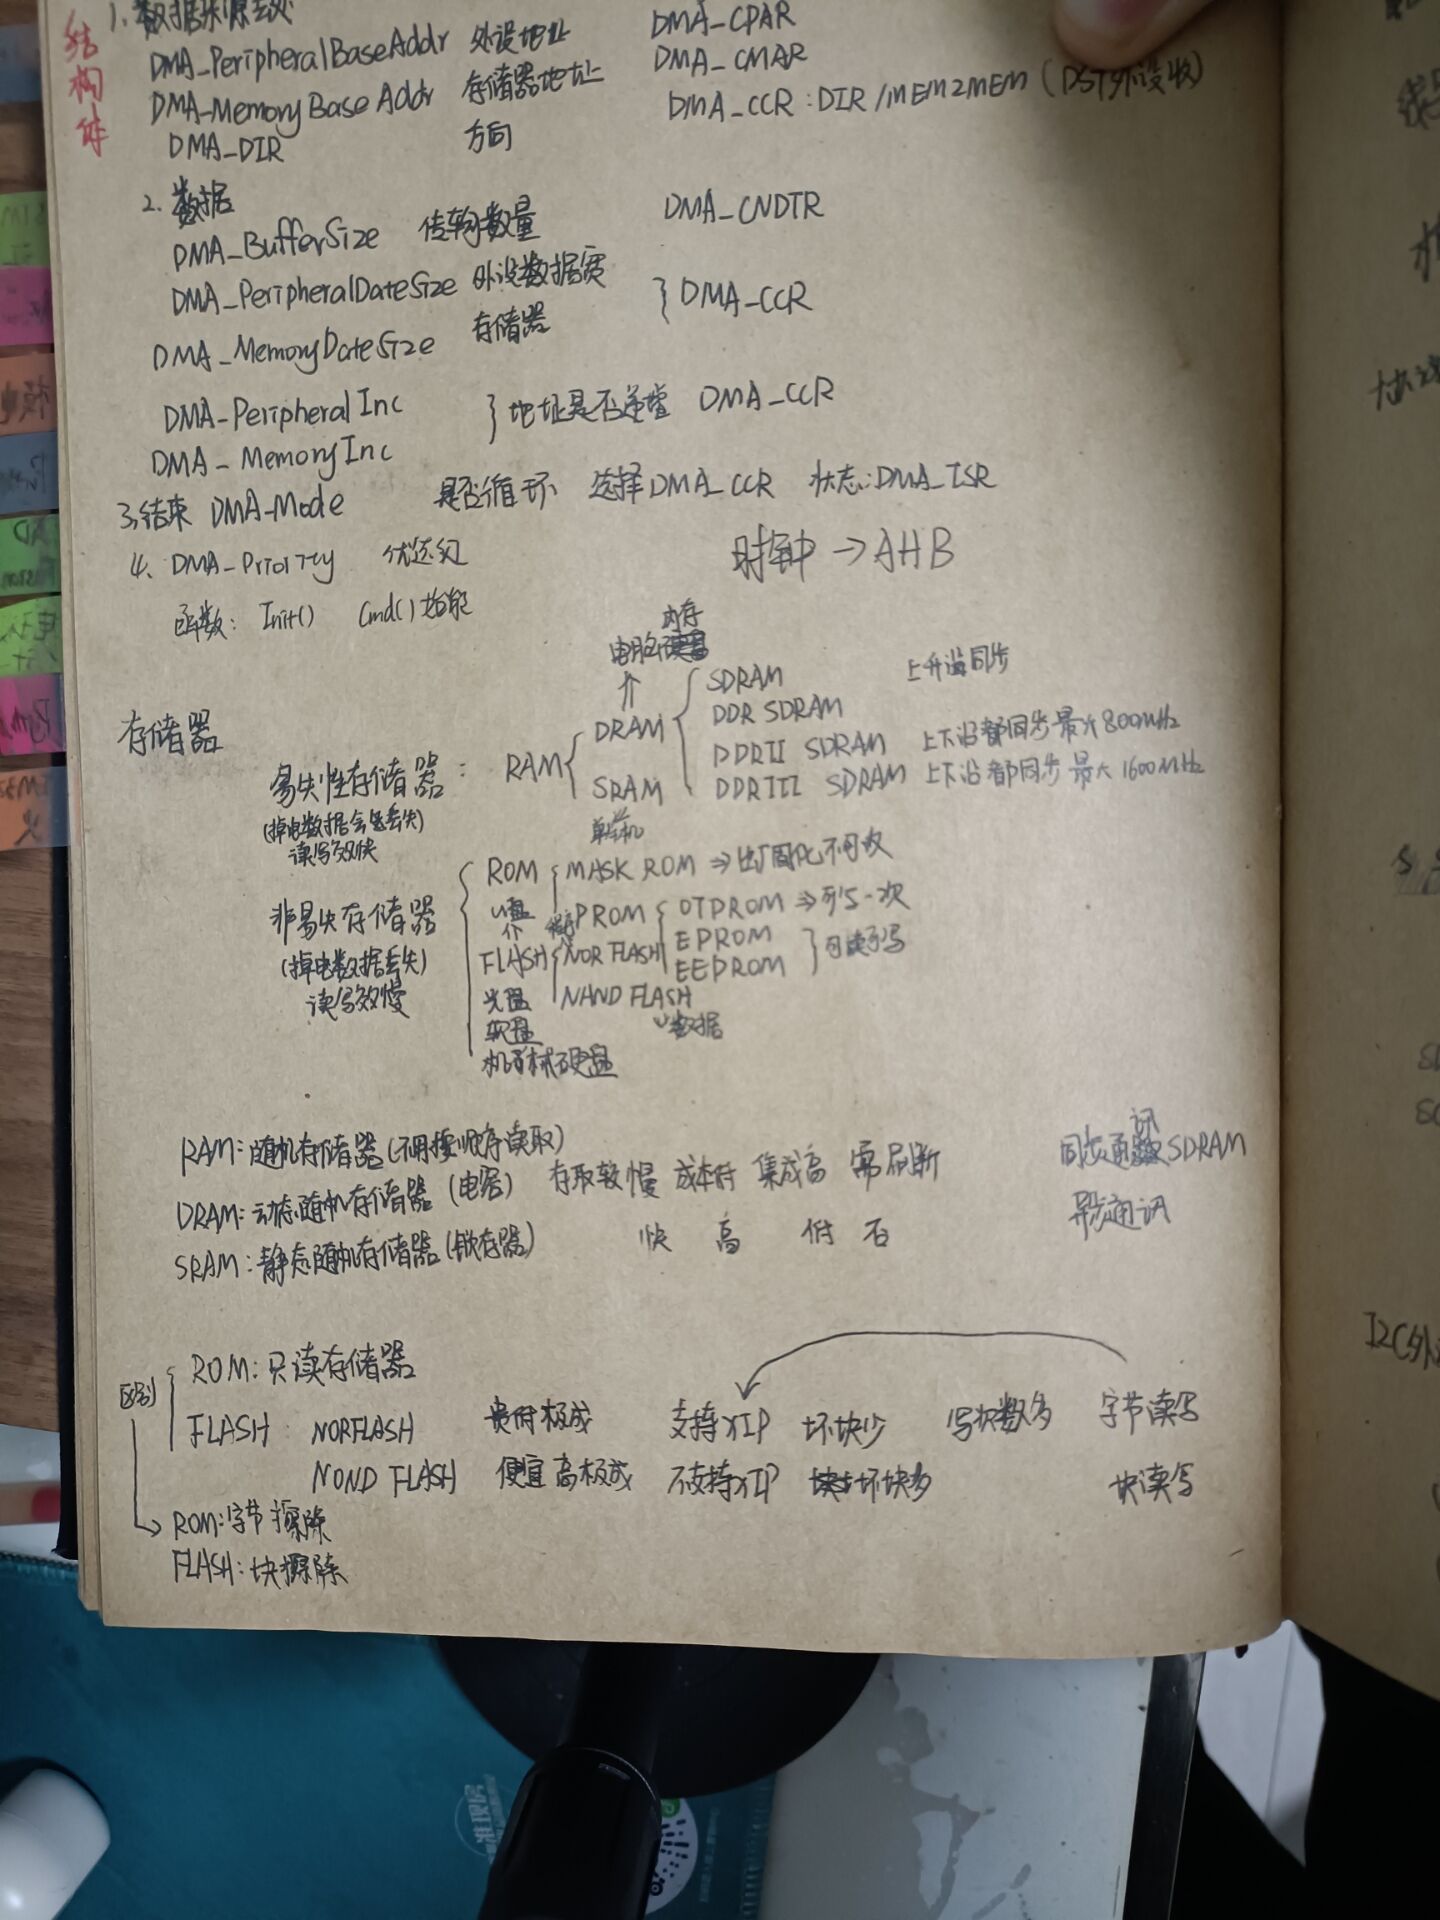 结构体
1. 数据来源去处
DMA_PeripheralBaseAddr 外设地址 DMA_CPAR
DMA_MemoryBaseAddr 存储器地址 DMA_CMAR
DMA_DIR 方向 DMA_CCR:DIR/MEM2MEM (DST外设收)
2. 数据
DMA_BufferSize 传输数量 DMA_CNDTR
DMA_PeripheralDateSize 外设数据宽
DMA_MemoryDateSize 存储器 } DMA_CCR
DMA_PeripheralInc
DMA_MemoryInc } 地址是否递增 DMA_CCR
3.结束 DMA_Mode 是否循环 选择DMA_CCR 状态:DMA_ISR
4. DMA_Priority 优选级
时钟→AHB
函数: Init() Cmd()
内存
电脑
存储器
易失性存储器: RAM{
DRAM{ SDRAM 上升沿同步
DDR SDRAM
DDRII SDRAM 上下沿都同步最大800MHz
DDRIII SDRAM 上下沿都同步最大1600MHz
SRAM
单片机
(掉电数据会丢失)
读写效快
非易失存储器
(掉电数据丢失)
读写效慢
ROM { MASK ROM ⇒出厂固化不可改
PROM { OTPROM ⇒可写一次
EPROM
EEPROM } 可读可写
U盘
FLASH { NOR FLASH 程序
NAND FLASH
数据
光盘
软盘
机械硬盘
RAM:随机存储器(不用按顺序读取)
DRAM:动态随机存储器(电容) 存取较慢 成本低 集成高 需刷新 同步通讯SDRAM
SRAM:静态随机存储器(锁存器) 快 高 低 否 异步通讯
区别
ROM:只读存储器
FLASH NORFLASH 贵低极成 支持XIP 坏块少 写次数多 字节读写
NOND FLASH 便宜高极成 不支持XIP 坏块多 块读写
ROM:字节擦除
FLASH:块擦除